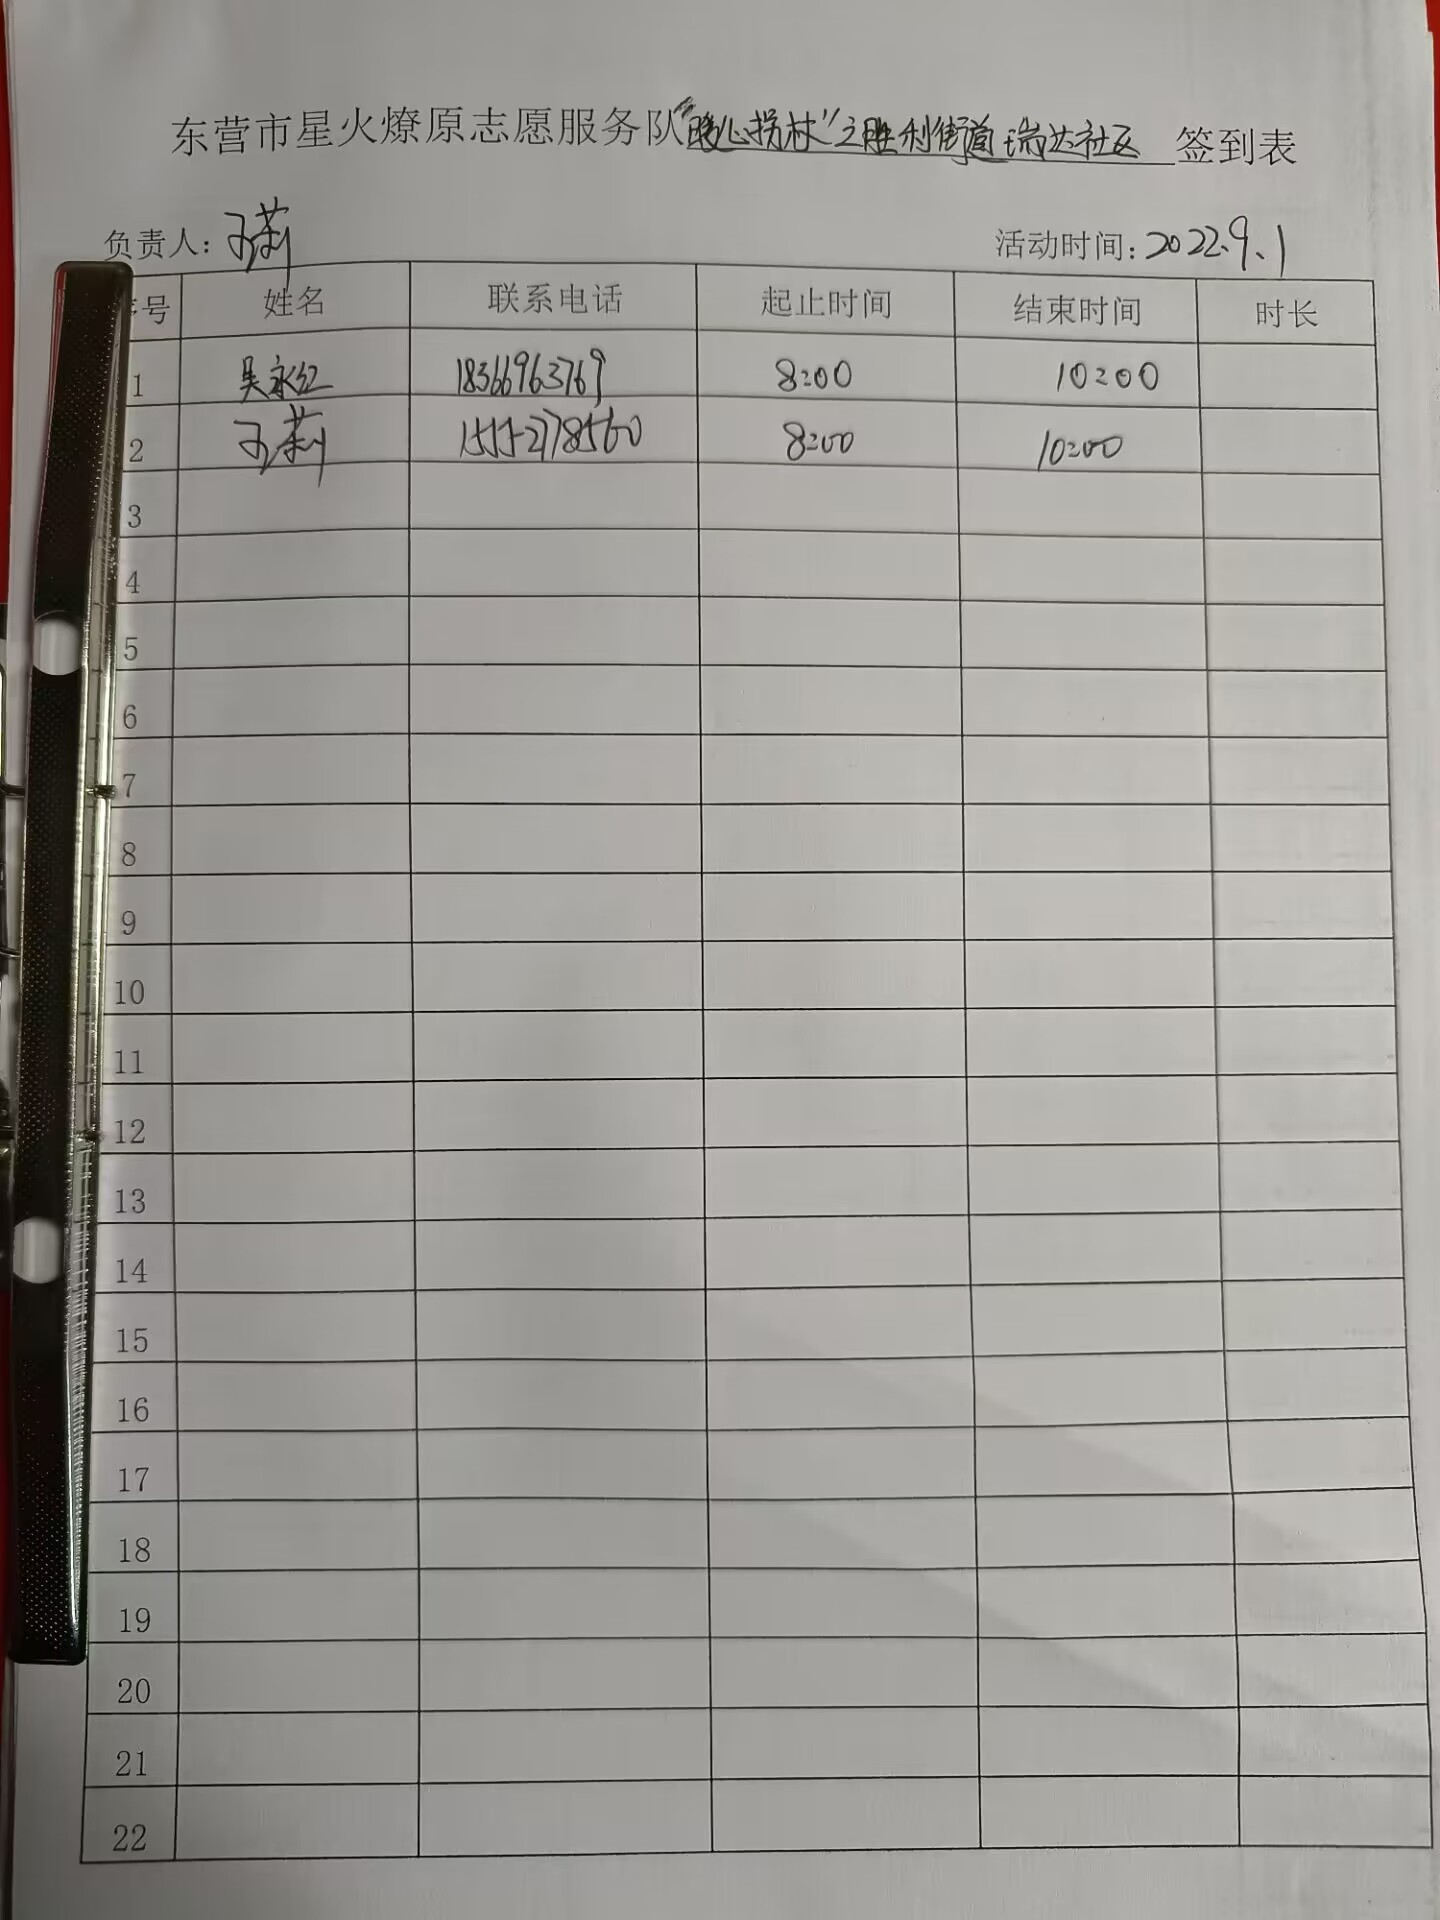 东营市星火燎原志愿服务队"暖心拐杖"之胜利街道瑞达社区 签到表
负责人：王莉 活动时间：2022.9.1
序号 姓名 联系电话 起止时间 结束时间 时长
1 吴永红 18366963769 8:00 10:00
2 王莉 15552778560 8:00 10:00
3
4
5
6
7
8
9
10
11
12
13
14
15
16
17
18
19
20
21
22